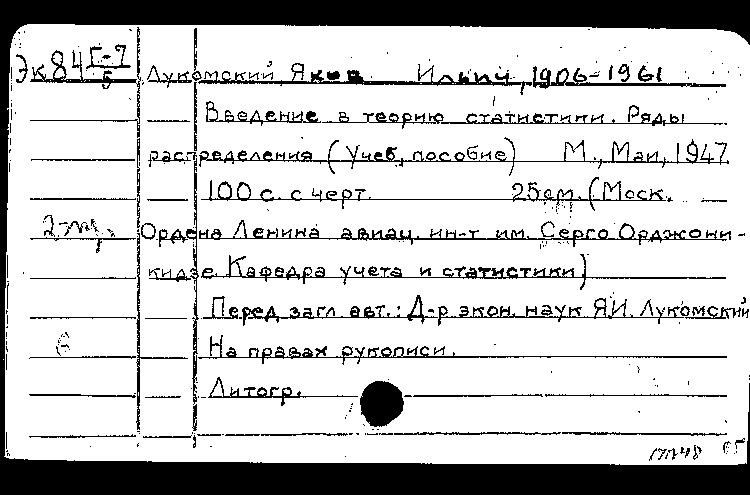 Эк 84 Г-7/5 Лукомский, Яков Ильич, 1906-1961
Введение в теорию статистики. Ряды
распределения (Учеб. пособие) М., Маи, 1947
100 с. с черт. 25 см. (Моск.
Ордена Ленина авиац. ин-т им. Серго Орджони-
кидзе. Кафедра учета и статистики)
Перед загл. авт.: Д-р экон. наук Я.И. Лукомский
На правах рукописи.
Литогр.